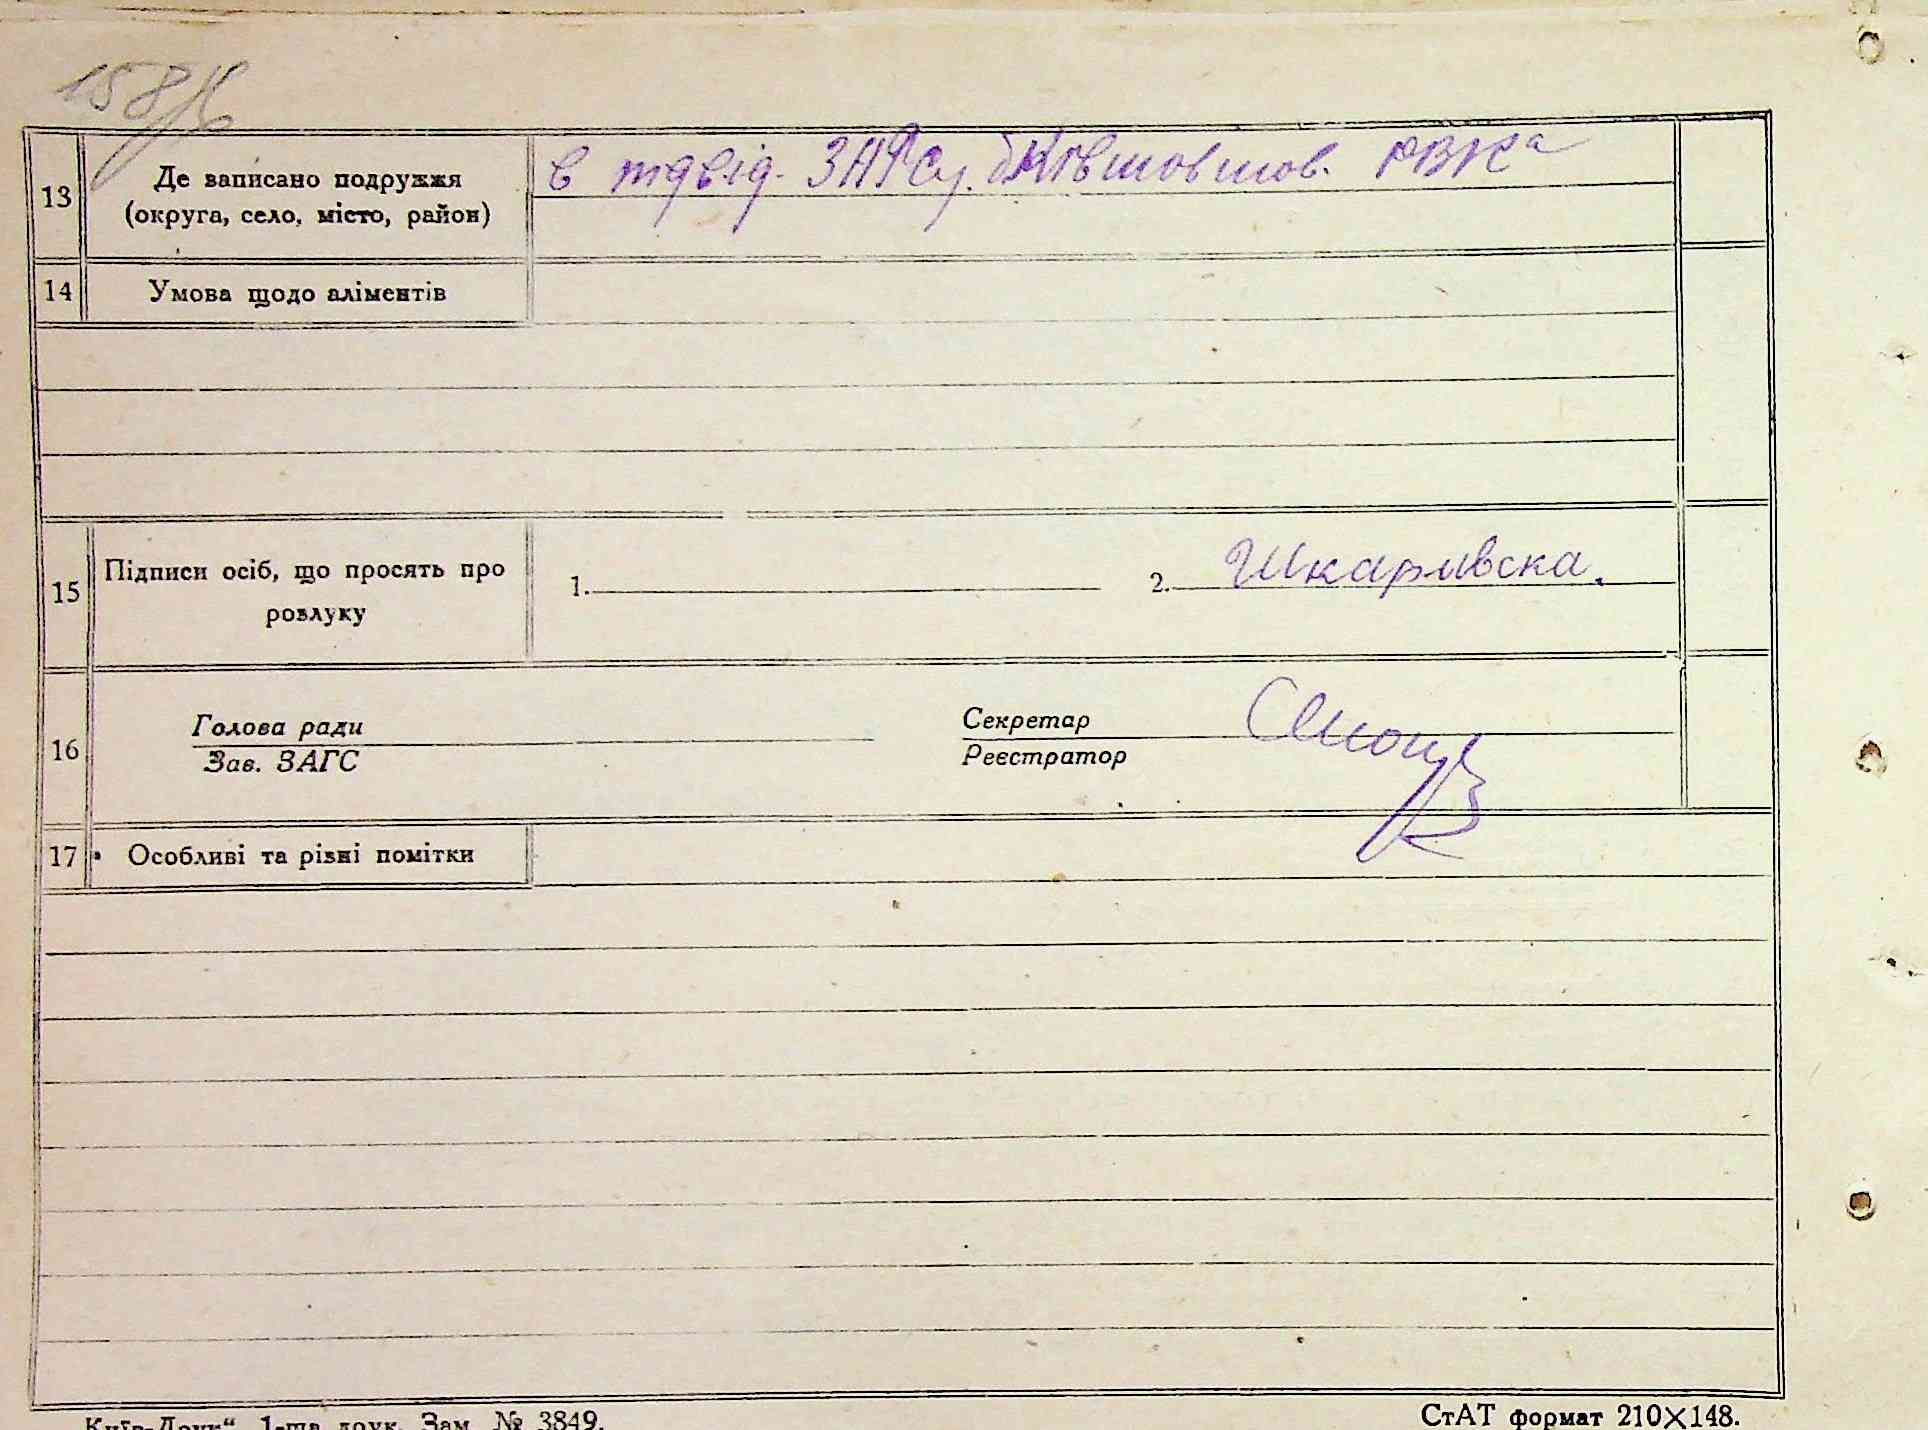 13 Де записано подружжя
(округа, село, місто, район)
в підвід. ЗАГСу. РВКа
14 Умова щодо аліментів
15 Підписи осіб, що просять про
розлуку
1. 2. Шкарлівска.
16 Голова ради
Зав. ЗАГС
Секретар
Реєстратор
17 Особливі та різні помітки
Київ-Друк“ 1-ша друк. Зам. № 3849.
СтАТ формат 210×148.